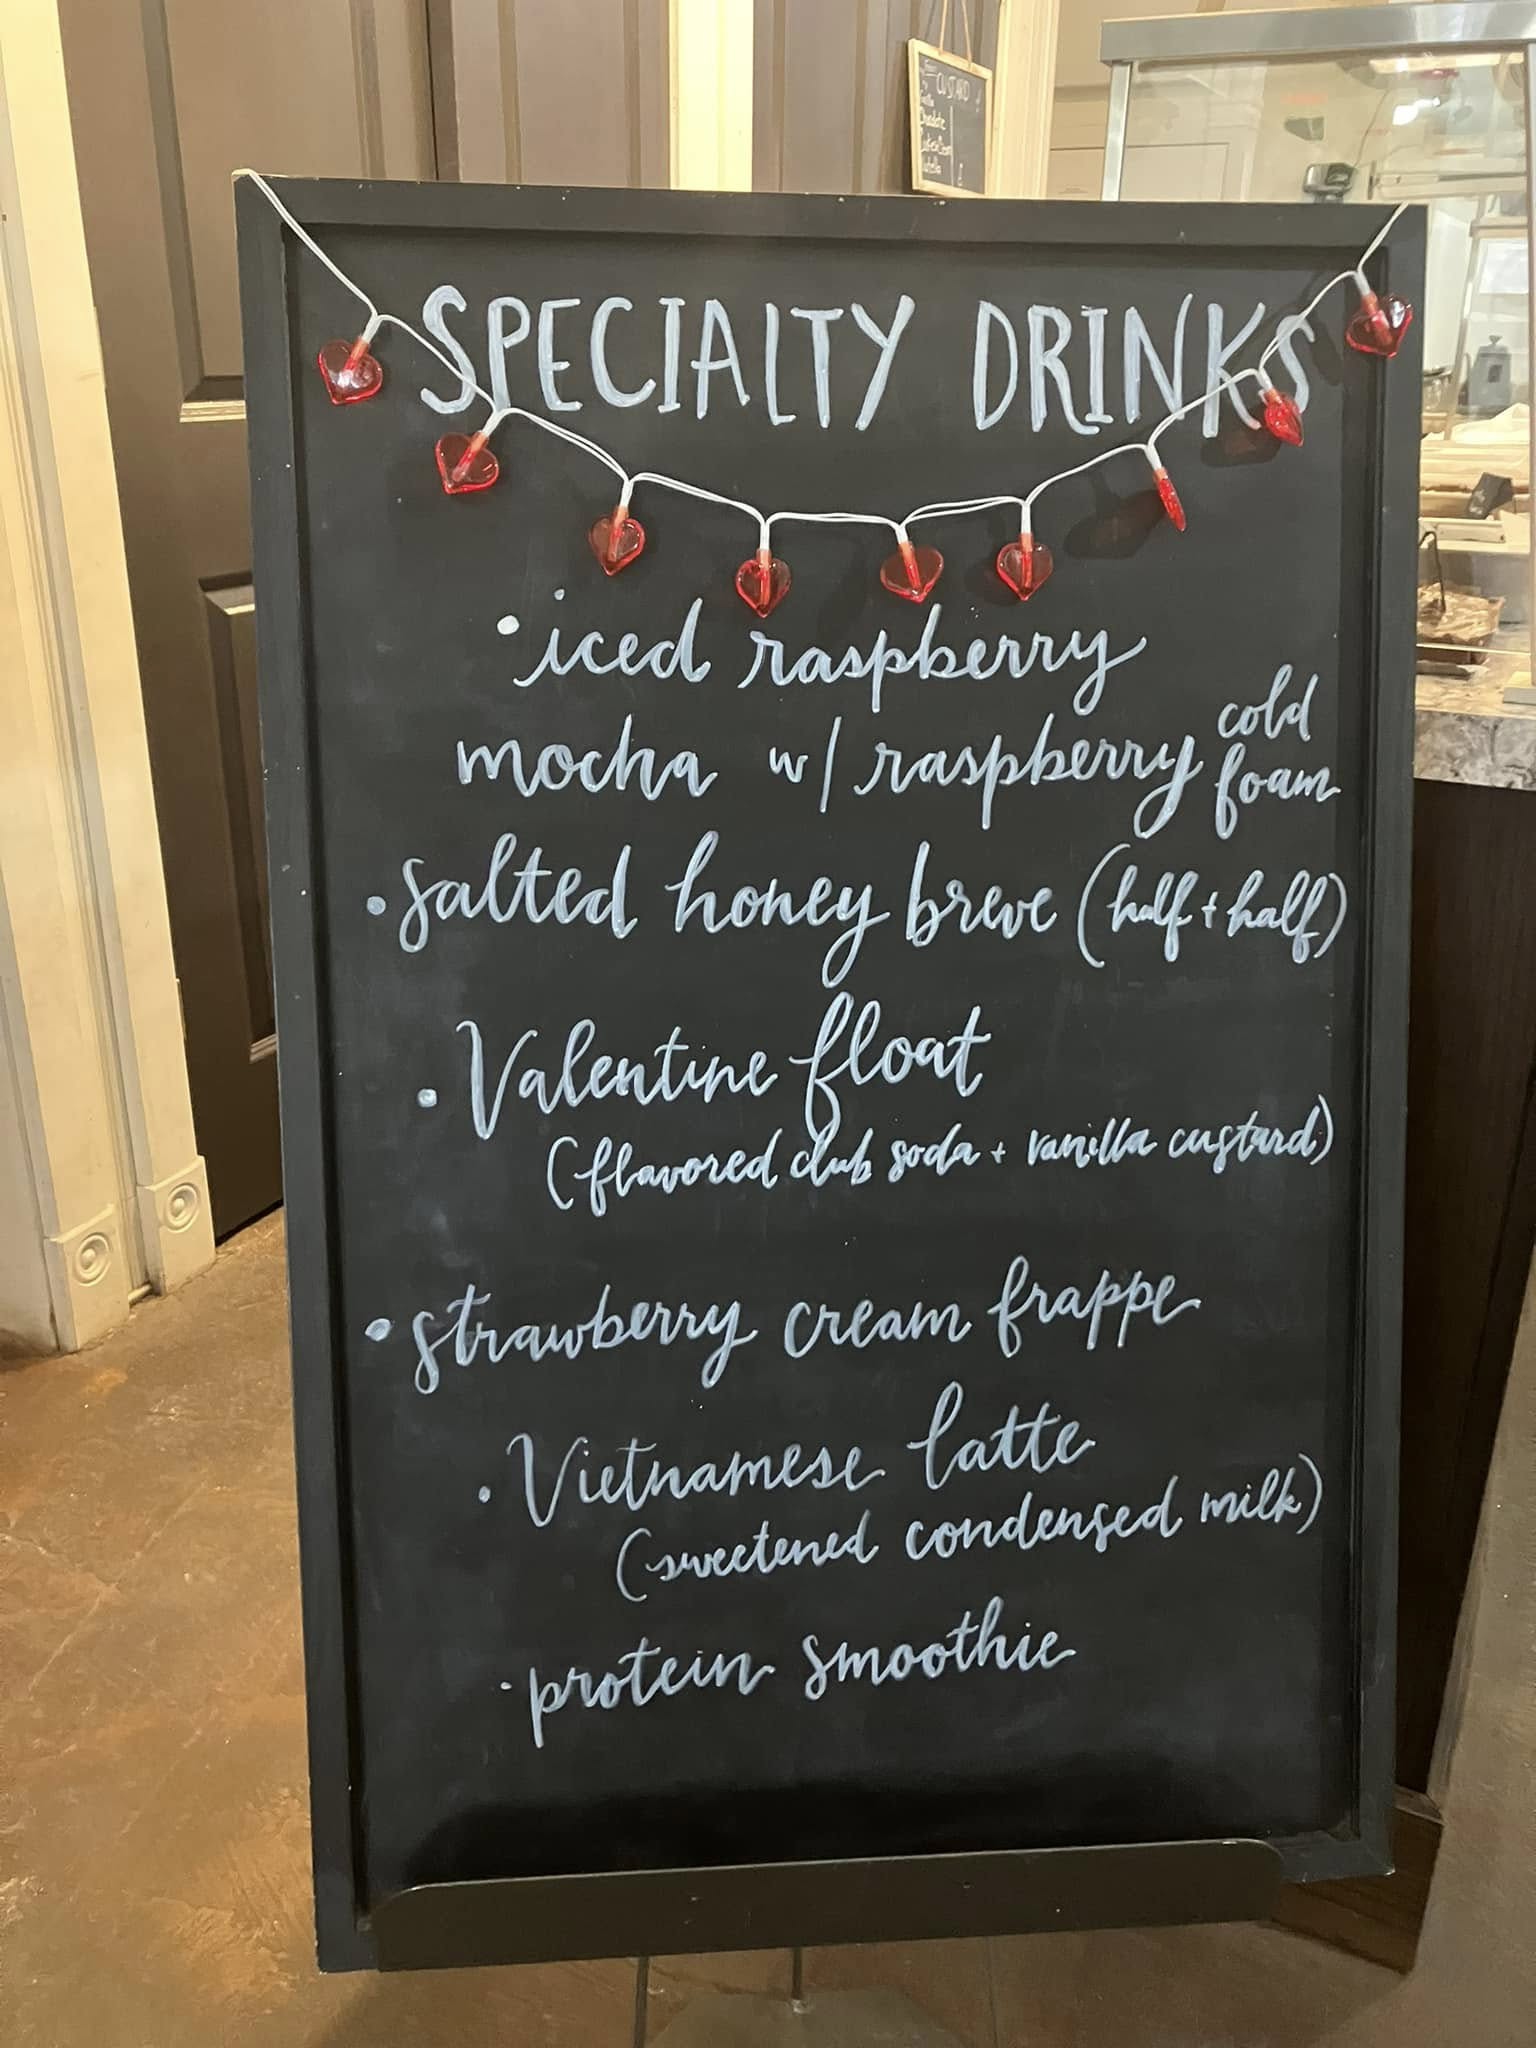 CUSTARD
SPECIALTY DRINKS
• iced raspberry
mocha w/ raspberry cold foam
• salted honey breve (half + half)
• Valentine float
(flavored club soda + vanilla custard)
• strawberry cream frappe
• Vietnamese latte
(sweetened condensed milk)
• protein smoothie